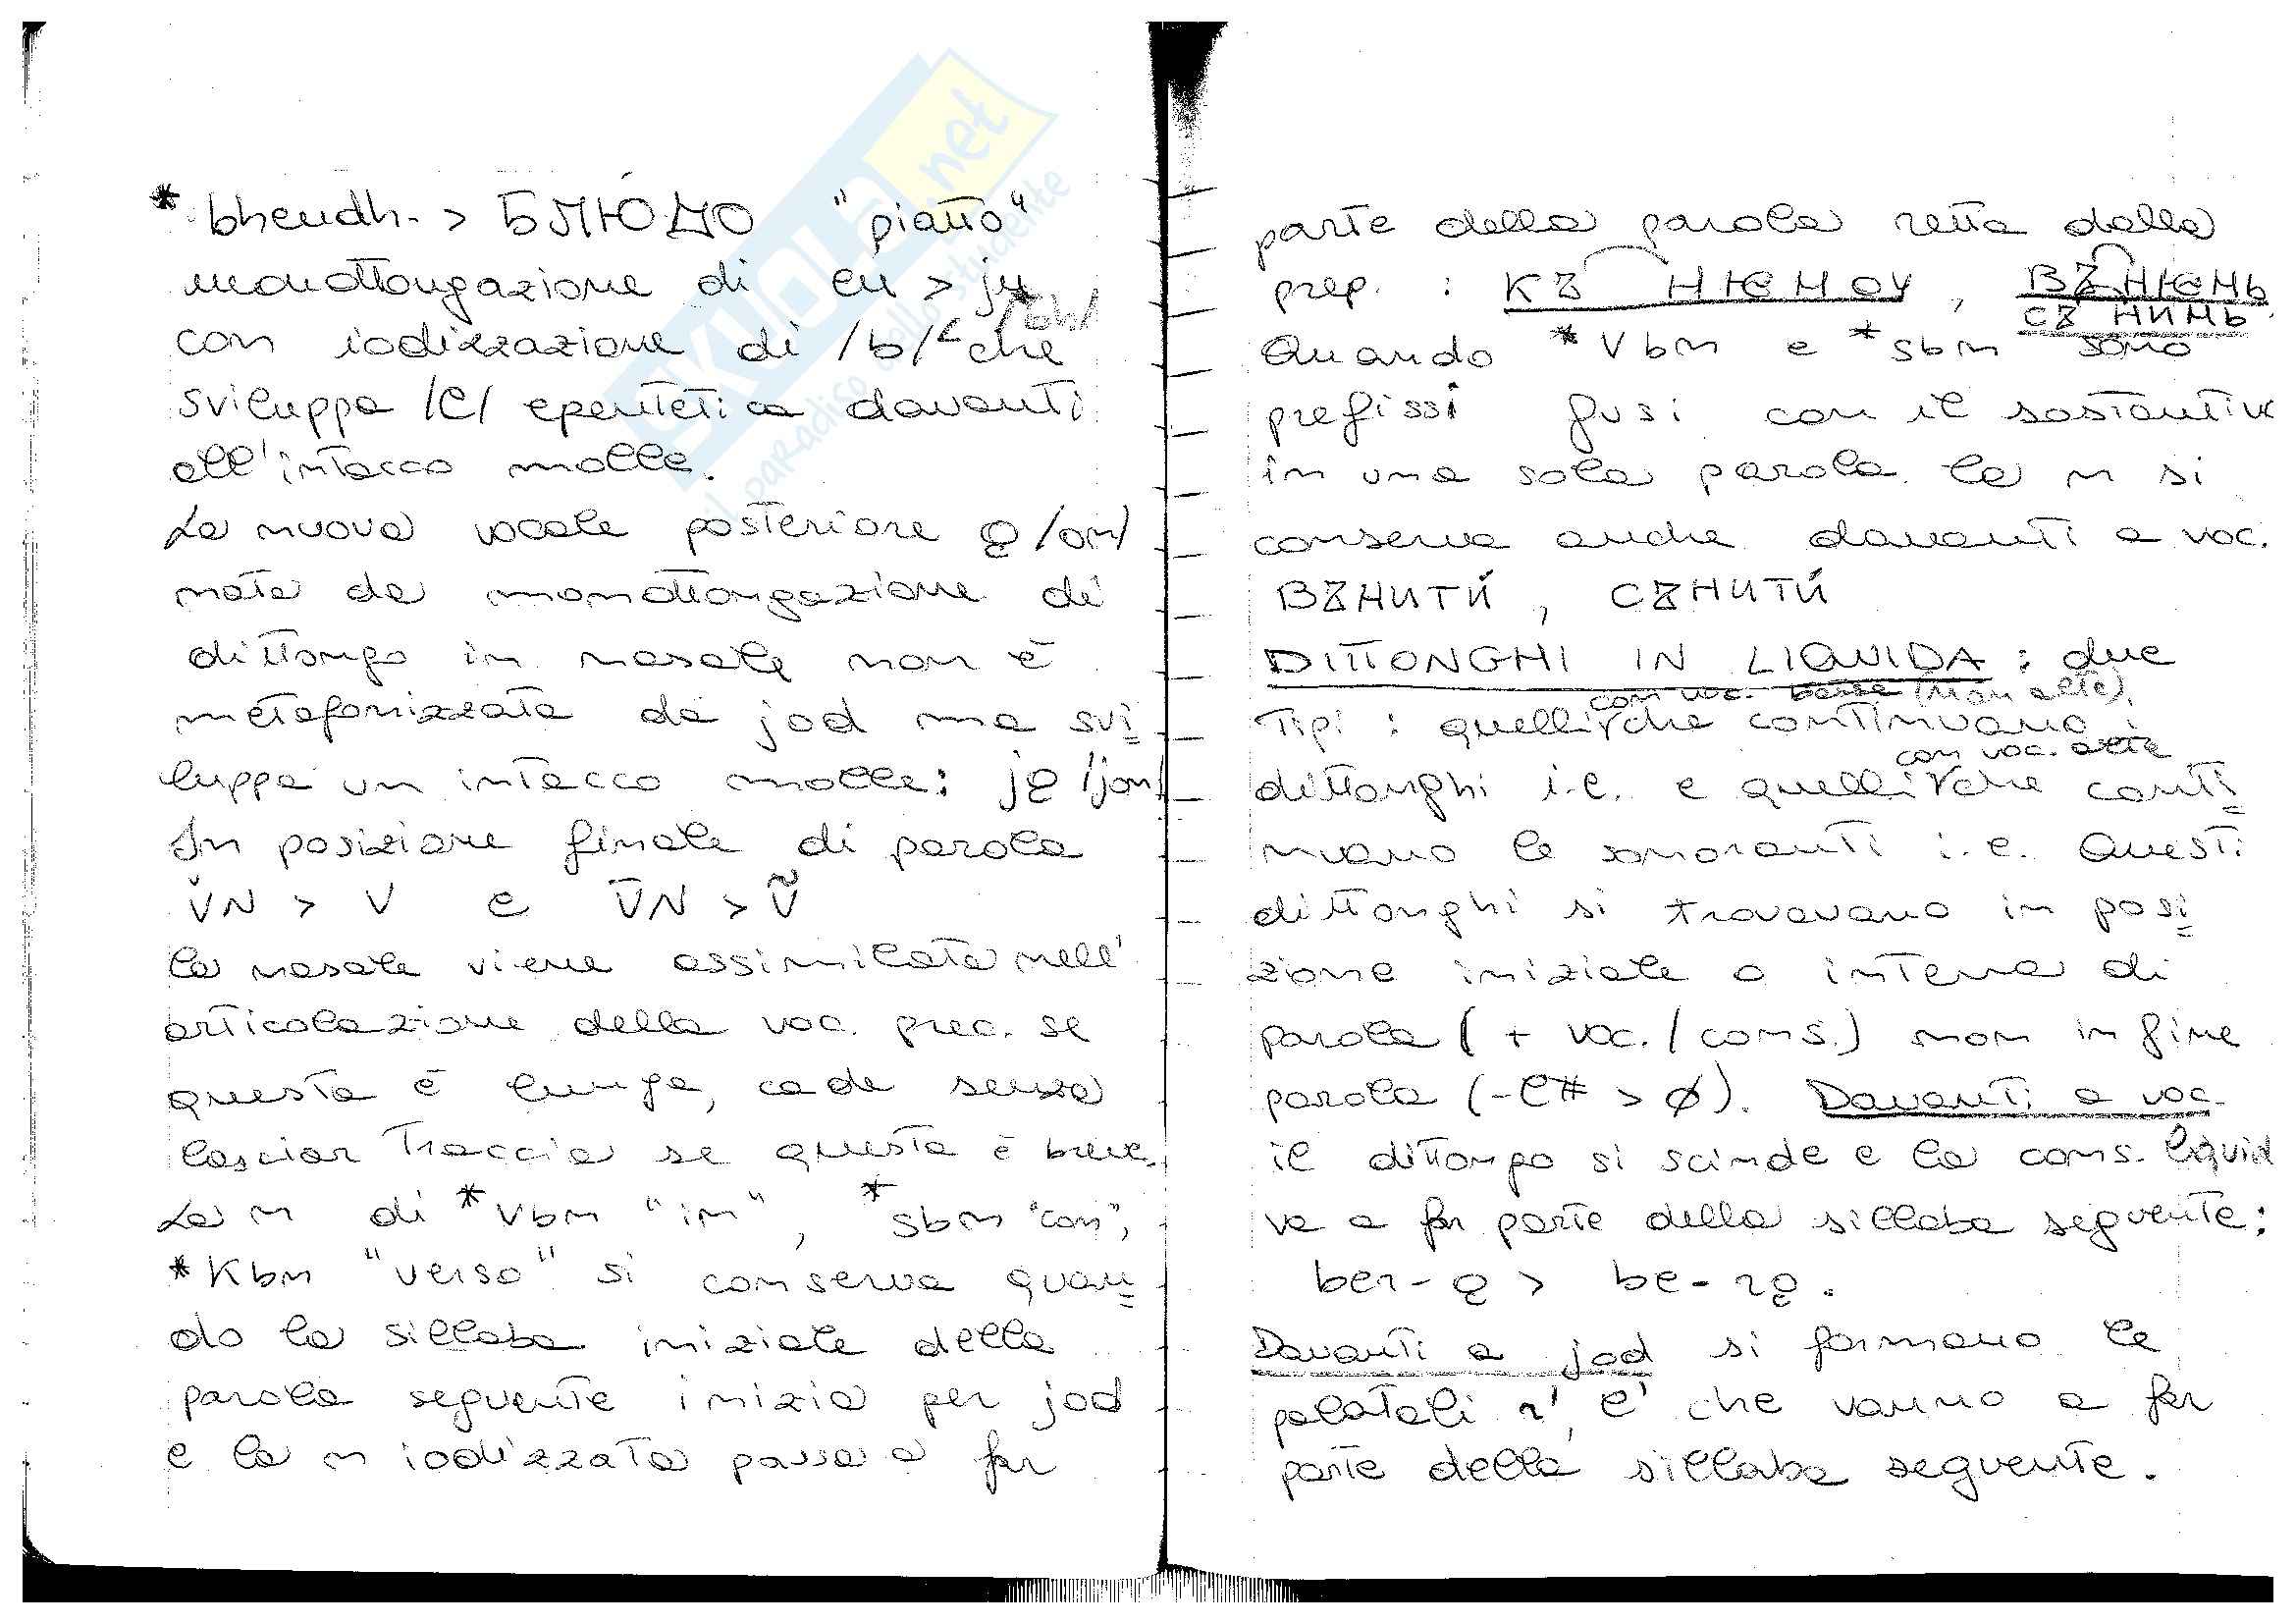 *bheudh- > БЛЮДО "piatto"
monottongazione di eu > ju
con iodizzazione di /b/ < */bh/ che
sviluppa /l/ epentetica davanti
all'intacco molle.
La nuova vocale posteriore ǫ /on/
nata da monottongazione di
dittongo in nasale non è
metafonizzata da jod ma svi=
luppa un intacco molle: jǫ /jon/
In posizione finale di parola
V̆N > V e V̄N > Ṽ
la nasale viene assimilata nell'
articolazione della voc. prec. se
questa è lunga, cade senza
lasciar traccia se questa è breve.
La n di *Vbn "in", *sbn "con",
*Kbn "verso" si conserva quan=
do la sillaba iniziale della
parola seguente inizia per jod
e la n iodizzata passa a far
parte della parola retta dalla
prep. : КЪ НѤМОУ, ВЪ НѤМЬ
СЪ НИМЬ.
Quando *Vbn e *sbn sono
prefissi fusi con il sostantivo
in una sola parola la n si
conserva anche davanti a voc.
ВЪНИТИ́, СЪНИТИ́
DITTONGHI IN LIQUIDA : due
con voc. basse (non alte)
tipi : quelli che continuano i
con voc. alte
dittonghi i.e. e quelli che conti=
nuano le sonoranti i.e. Questi
dittonghi si trovavano in posi=
zione iniziale o interna di
parola (+ voc. / cons.) non in fine
parola (-l# > ø). Davanti a voc.
il dittongo si scinde e la cons. liquid
va a far parte della sillaba seguente:
ber-ǫ > be-rǫ.
Davanti a jod si formano le
palatali r', l' che vanno a far
parte della sillaba seguente.
SKUOLA.net
il paradiso dello studente